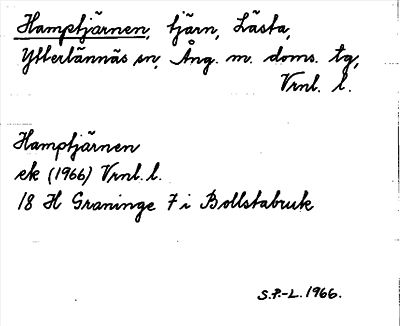 Hamptjärnen, tjärn, Lästa,
Ytterlännäs sn, Ång. m. doms. tg,
Vrnl. l.
Hamptjärnen
ek (1966) Vrnl. l.
18 H Graninge 7 i Bollstabruk
S.P.-L. 1966.